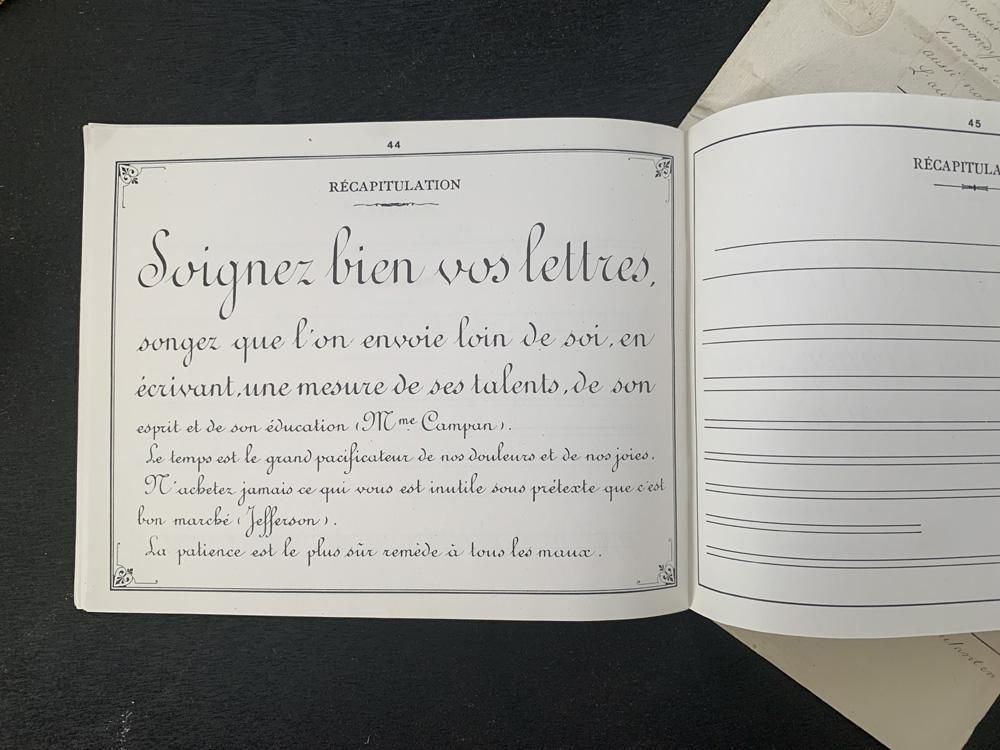 44
RÉCAPITULATION
Soignez bien vos lettres,
songez que l'on envoie loin de soi, en
écrivant, une mesure de ses talents, de son
esprit et de son éducation (Mme Campan).
Le temps est le grand pacificateur de nos douleurs et de nos joies.
N'achetez jamais ce qui vous est inutile sous prétexte que c'est
bon marché (Jefferson).
La patience est le plus sûr remède à tous les maux.
45
RÉCAPITULA
aussi